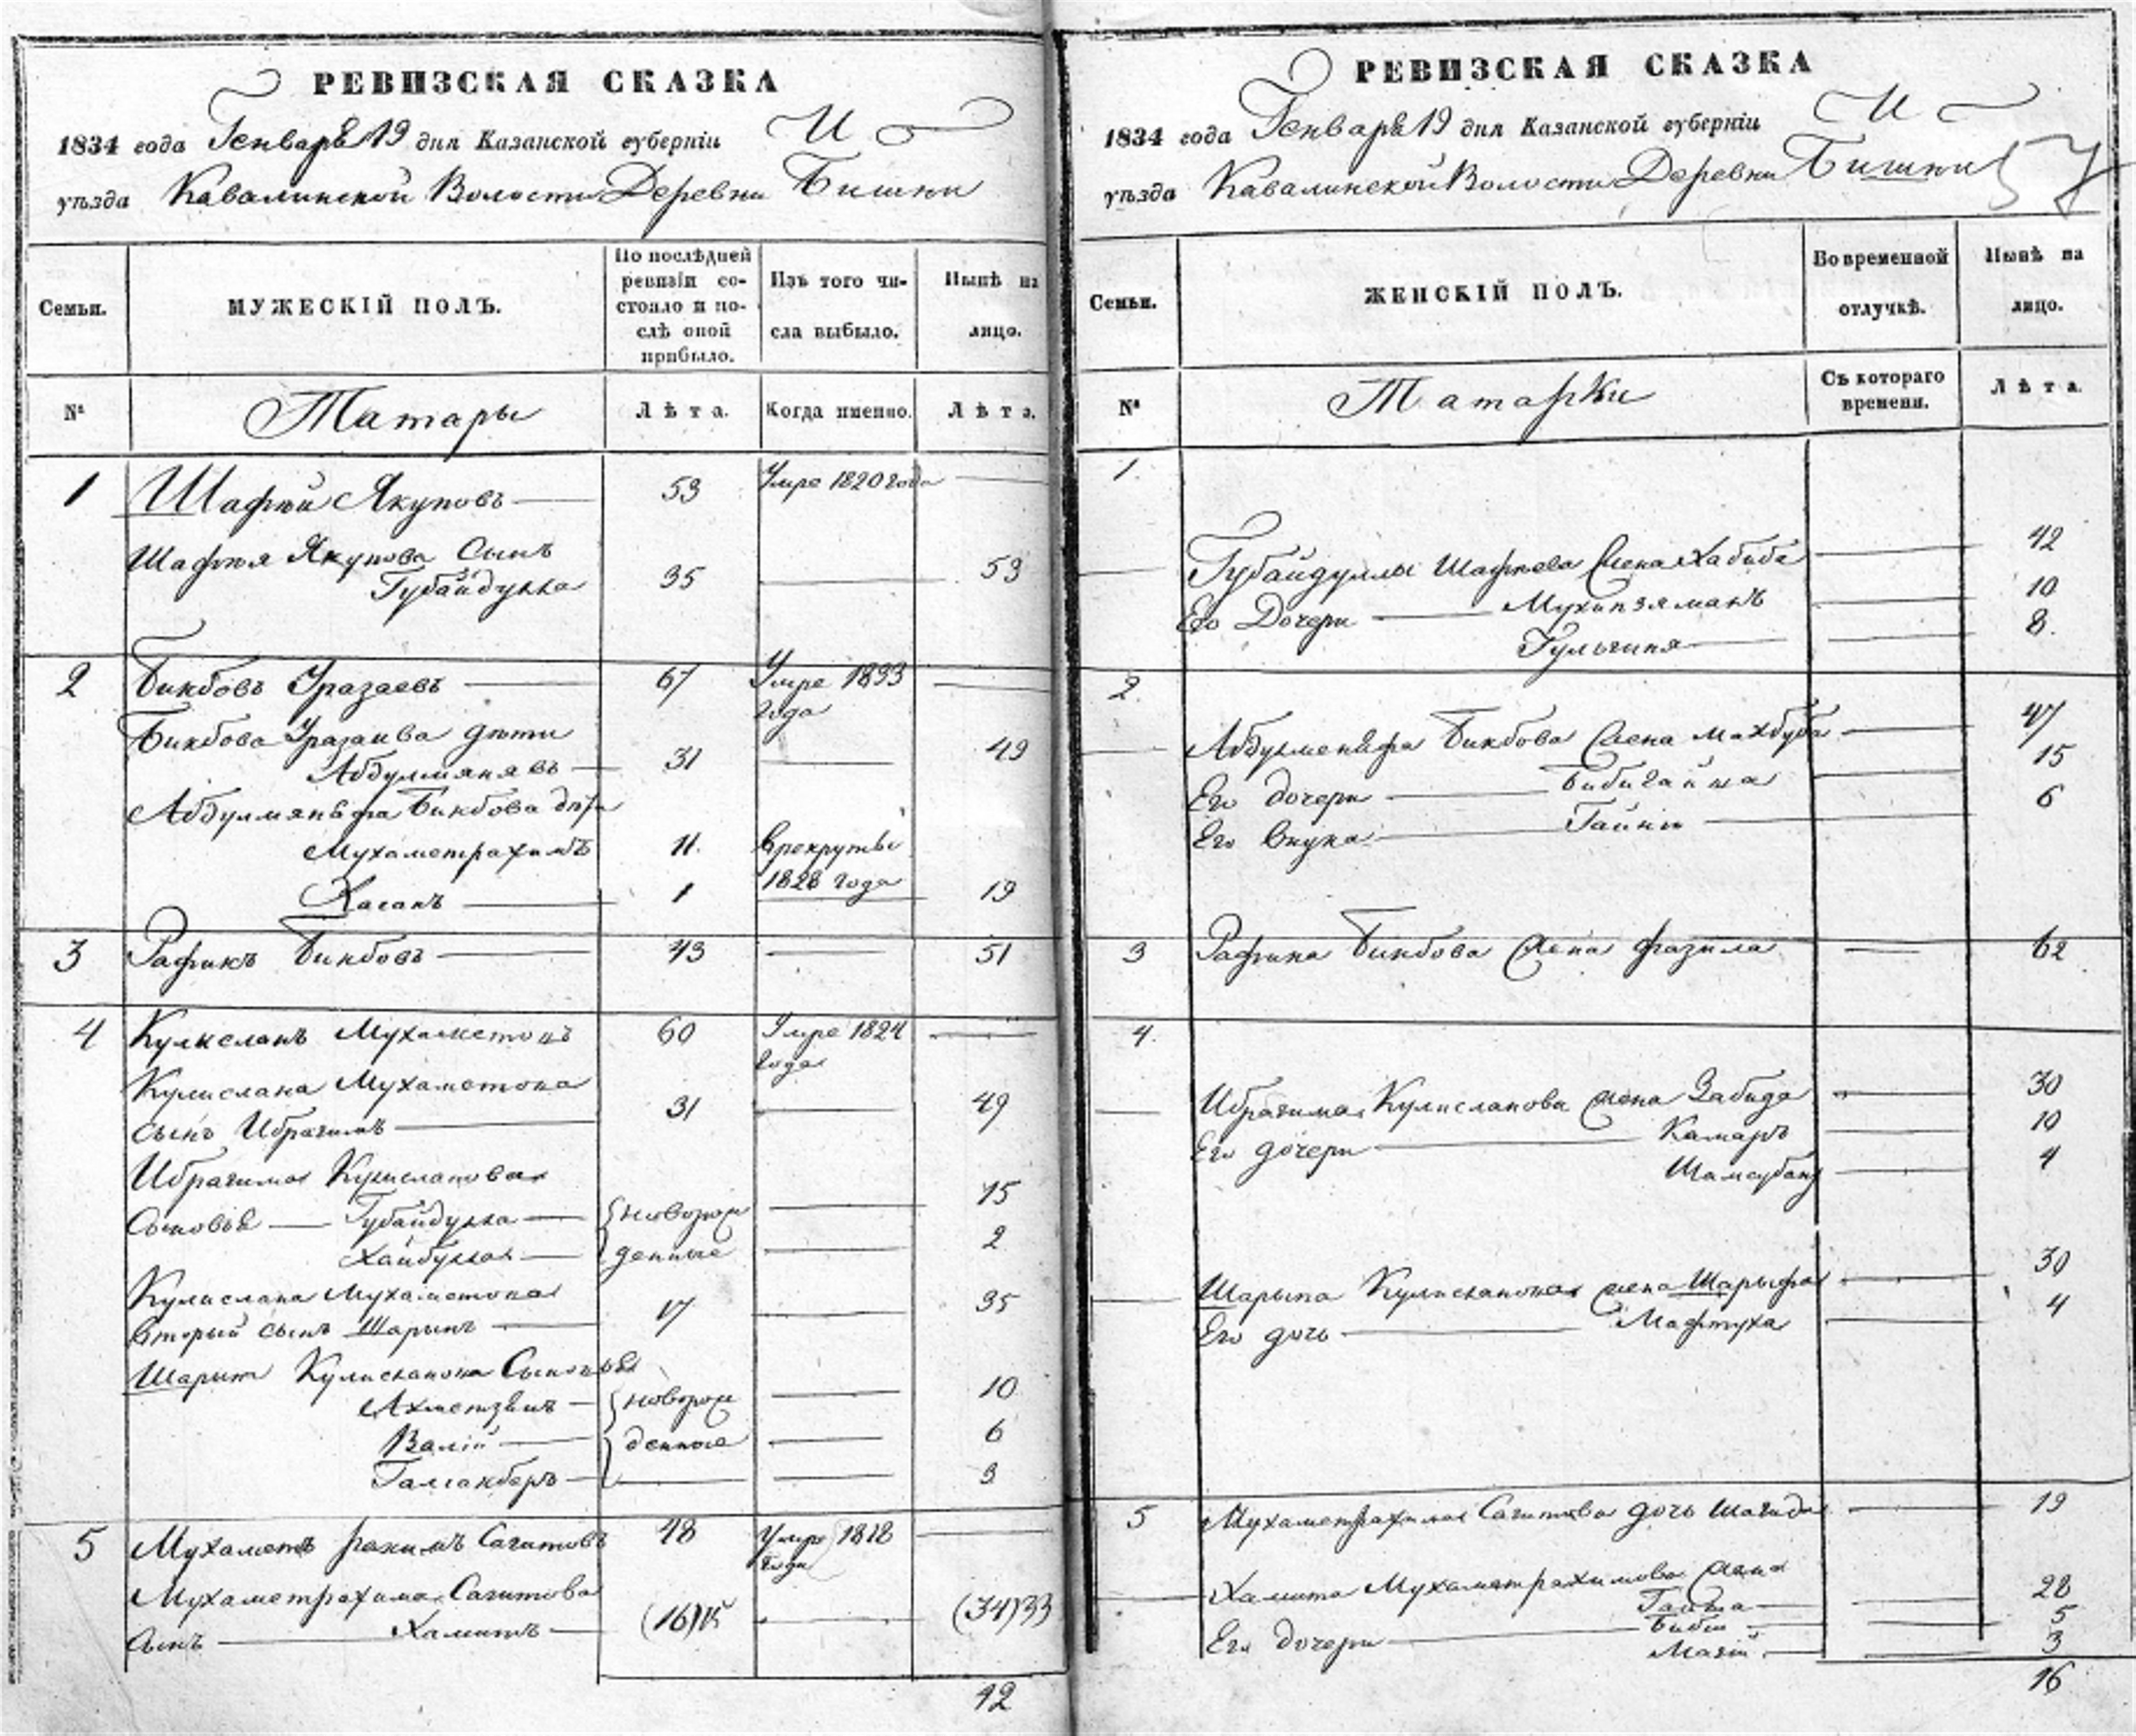 РЕВИЗСКАЯ СКАЗКА
1834 года Генваря 19 дня Казанской губерніи
уѣзда Кавалинской Волости Деревни Бишни
Семьи.
МУЖЕСКІЙ ПОЛЪ.
По послѣдней ревизіи состояло и послѣ оной прибыло.
Изъ того числа выбыло.
Нынѣ на лицо.
№
Татары
Лѣта.
Когда именно.
Лѣта.
1 Шафѣй Якуповъ 53 Умре 1820 года
Шафѣя Якупова Сынъ
Губайдулла 35 53
2 Бикбовъ Уразаевъ 67 Умре 1833
года
Бикбова Уразаева дѣти
Абдулмяняѳъ 31 49
Бикбова дѣти
Мухаметрахимъ 11. Врекруты
1828 года
Хасанъ 1 19
3 Рафикъ Бикбовъ 43 51
4 Мухаметовъ 60 Умре 1824
года
Кулислана Мухаметова
сынъ Ибрагимъ 31 49
Ибрагима Кулисланова
Сыновья Губайдулла новорож 15
Хайбулла денные 2
Кулислана Мухаметова
Вторый сынъ Шарыпъ 17 35
Шарыпа Кулисланова Сыновья
Ахметзянъ новорож 10
Валій денные 6
3
5 Мухаметъ рахимъ Сагитовъ 48 Умре 1818
года
Мухаметрахима Сагитова
Сынъ Хамитъ (16) (34)33
12
РЕВИЗСКАЯ СКАЗКА
1834 года Генваря 19 дня Казанской губерніи
уѣзда Кавалинской Волости Деревни Бишни
57
Семьи.
ЖЕНСКІЙ ПОЛЪ.
Во временной отлучкѣ.
Нынѣ на лицо.
№
Татарки
Съ котораго времени.
Лѣта.
1.
Губайдуллы Шафѣева Жена Хабиба 42
Его Дочери Мухипзяманъ 10
8.
2.
Бикбова Жена Махбуба 47
Его дочери Бибигайша 15
Его внука 6
3 Рафика Бикбова Жена Фазила 62
4.
Ибрагима Кулисланова жена Забида 30
Его дочери Камаръ 10
Шамсубану 4
Шарыпа Кулисланова жена Шарыфа 30
Его дочь Мафтуха 4
5 Мухаметрахима Сагитова дочь Шагида 19
Хамита Мухаметрахимова Жена
28
Его дочери Биби 5
3
16